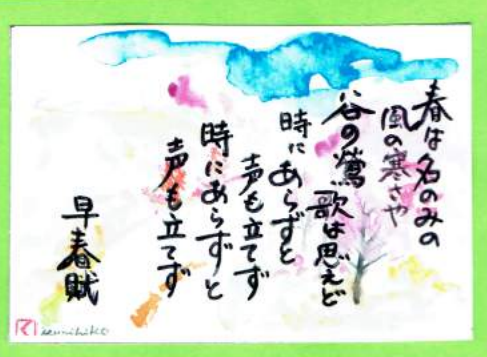 春は名のみの
風の寒さや
谷の鶯 歌は思えど
時にあらずと
声も立てず
時にあらずと
声も立てず
早春賦